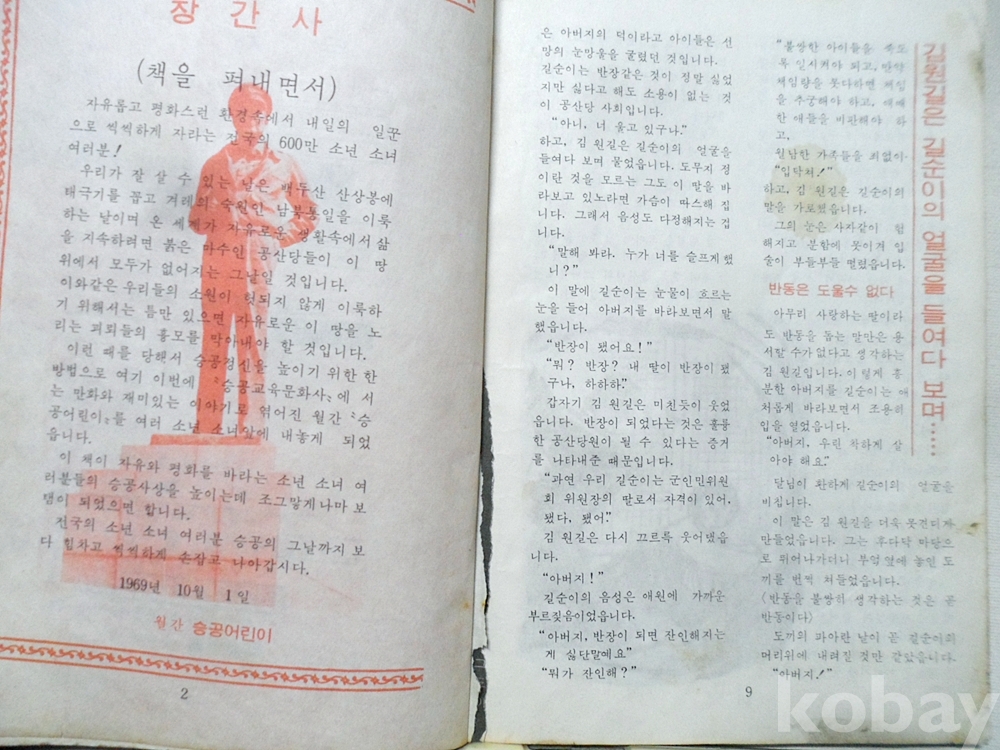 창 간 사
(책을 펴내면서)
자유롭고 평화스런 환경속에서 내일의 일꾼
으로 씩씩하게 자라는 전국의 600만 소년 소녀
여러분!
우리가 잘 살 수 있는 날은 백두산 산상봉에
태극기를 꼽고 겨레의 숙원인 남북통일을 이룩
하는 날이며 온 세계가 자유로운 생활속에서 삶
을 지속하려면 붉은 마수인 공산당들이 이 땅
위에서 모두가 없어지는 그날일 것입니다.
이와같은 우리들의 소원이 헛되지 않게 이룩하
기 위해서는 틈만 있으면 자유로운 이 땅을 노
리는 괴뢰들의 흉모를 막아내야 할 것입니다.
이런 때를 당해서 승공정신을 높이기 위한 한
방법으로 여기 이번에 〝승공교육문화사〟에서
는 만화와 재미있는 이야기로 엮어진 월간〝승
공어린이〟를 여러 소년 소녀앞에 내놓게 되었
읍니다.
이 책이 자유와 평화를 바라는 소년 소녀 여
러분들의 승공사상을 높이는데 조그맣게나마 보
탬이 되었으면 합니다.
전국의 소년 소녀 여러분 승공의 그날까지 보
다 힘차고 씩씩하게 손잡고 나아갑시다.
1969년 10월 1일
월간 승공어린이
2
은 아버지의 덕이라고 아이들은 선
망의 눈망울을 굴렸던 것입니다.
길순이는 반장같은 것이 정말 싫었
지만 싫다고 해도 소용이 없는 것
이 공산당 사회입니다.
"아니, 너 울고 있구나."
하고, 김 원길은 길순이의 얼굴을
들여다 보며 물었읍니다. 도무지 정
이란 것을 모르는 그도 이 딸을 바
라보고 있노라면 가슴이 따스해 집
니다. 그래서 음성도 다정해지는 겁
니다.
"말해 봐라. 누가 너를 슬프게했
니?"
이 말에 길순이는 눈물이 흐르는
눈을 들어 아버지를 바라보면서 말
했읍니다.
"반장이 됐어요!"
"뭐? 반장? 내 딸이 반장이 됐
구나, 하하하"
갑자기 김 원길은 미친듯이 웃었
읍니다. 반장이 되었다는 것은 훌륭
한 공산당원이 될 수 있다는 증거
를 나타내준 때문입니다.
"과연 우리 길순이는 군인민위원
회 위원장의 딸로서 자격이 있어,
됐다, 됐어."
김 원길은 다시 끄르륵 웃어댔읍
니다.
"아버지!"
길순이의 음성은 애원에 가까운
부르짖음이었읍니다.
"아버지, 반장이 되면 잔인해지는
게 싫단말예요"
"뭐가 잔인해?"
"불쌍한 아이들을 죽도
록 일시켜야 되고, 만약
책임량을 못다하면 책임
을 추궁해야 하고,
한 애들을 비판해야 하
고,
월남한 가족들을 죄없이"
"입닥쳐!"
하고, 김 원길은 길순이의
말을 가로챘읍니다.
그의 눈은 사자같이 험
해지고 분함에 못이겨 입
술이 부들부들 떨렸읍니다.
반동은 도울수 없다
아무리 사랑하는 딸이라
도 반동을 돕는 말만은 용
서할 수가없다고 생각하는
김 원길입니다. 이렇게 흥
분한 아버지를 길순이는 애
처롭게 바라보면서 조용히
입을 열었읍니다.
"아버지, 우린 착하게 살
아야 해요."
달님이 환하게 길순이의 얼굴을
비칩니다.
이 말은 김 원길을 더욱 못견디게
만들었읍니다. 그는 후다닥 마당으
로 뛰어나가더니 부엌옆에 놓인 도
끼를 번쩍 처들었읍니다.
(반동을 불쌍히 생각하는 것은 곧
반동이다)
도끼의 파아란 날이 곧 길순이의
머리위에 내려질 것만 같았읍니다.
"아버지!"
김원길은 길순이의 얼굴을 들여다 보며……
9
kobay